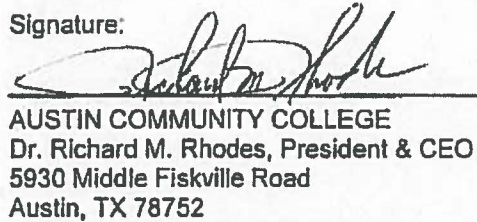 Signature:
Richard M Rhodes
AUSTIN COMMUNITY COLLEGE
Dr. Richard M. Rhodes, President & CEO
5930 Middle Fiskville Road
Austin, TX 78752